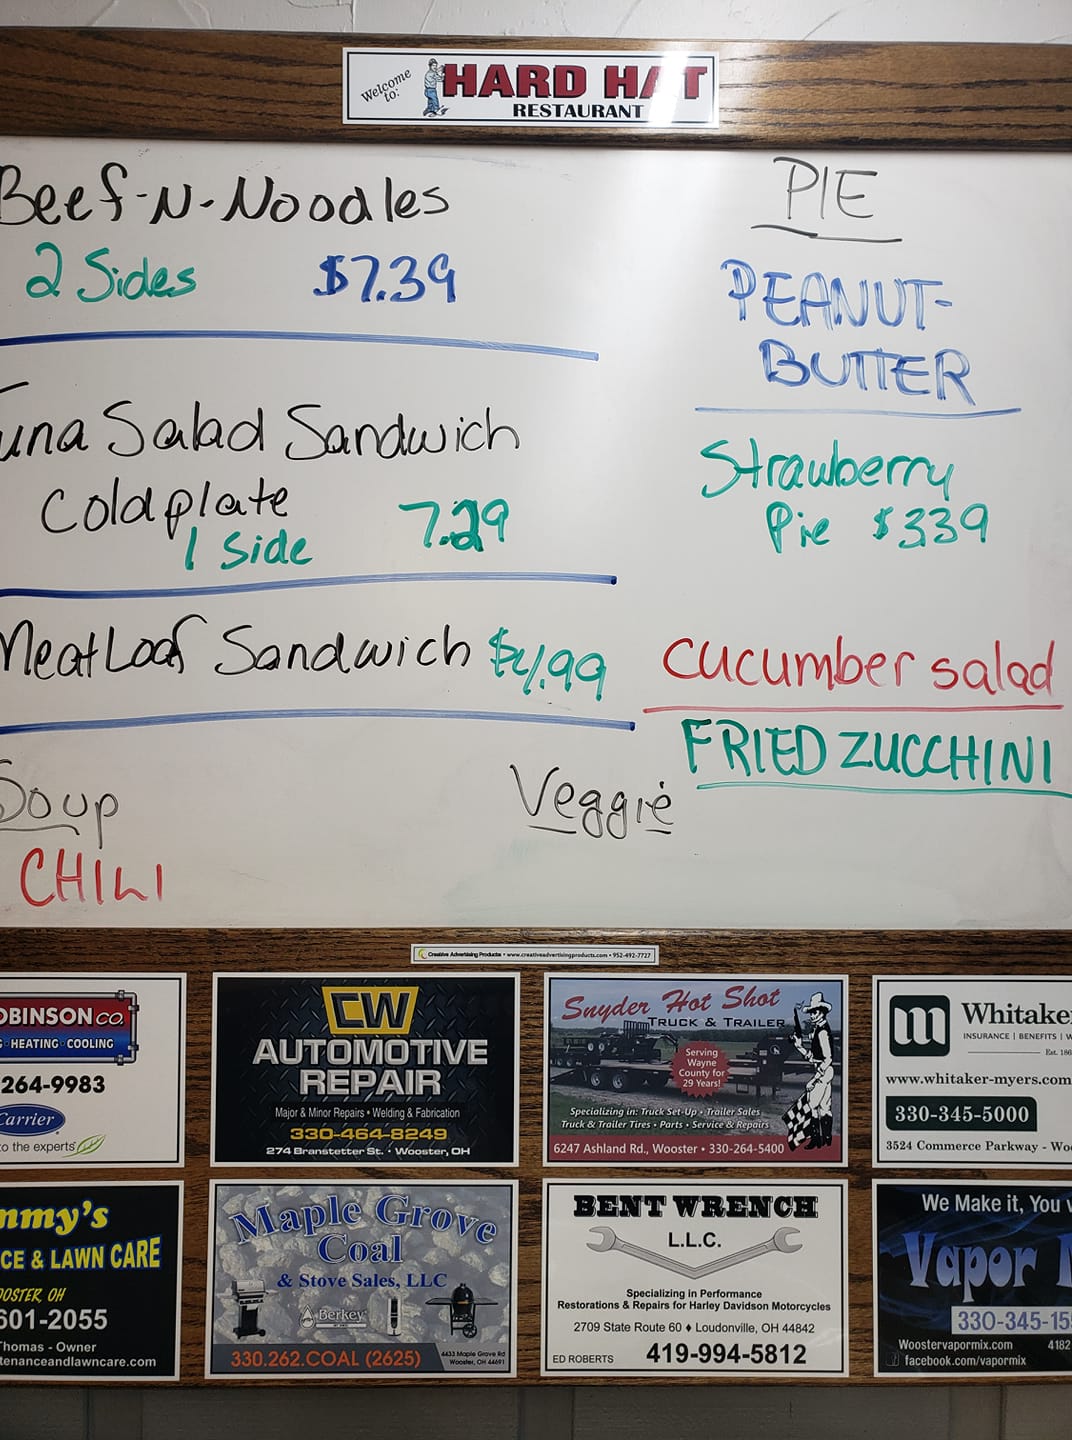 Welcome to: HARD HAT
RESTAURANT
Beef-N-Noodles
2 Sides $7.39
Tuna Salad Sandwich
Coldplate
1 Side 7.29
MeatLoaf Sandwich $4.99
Soup
CHILI
Veggie
PIE
PEANUT-
BUTTER
Strawberry
Pie $339
cucumber salad
FRIED ZUCCHINI
Creative Advertising Products • www.creativeadvertisingproducts.com • 952-492-7727
OBINSON CO.
G · HEATING · COOLING
264-9983
Carrier
to the experts
CW
AUTOMOTIVE
REPAIR
Major & Minor Repairs • Welding & Fabrication
330-464-8249
274 Branstetter St. • Wooster, OH
Snyder Hot Shot
TRUCK & TRAILER
Serving
Wayne
County for
29 Years!
Specializing in: Truck Set-Up • Trailer Sales
Truck & Trailer Tires • Parts • Service & Repairs
6247 Ashland Rd., Wooster • 330-264-5400
Whitaker
INSURANCE | BENEFITS | W
Est. 186
www.whitaker-myers.com
330-345-5000
3524 Commerce Parkway - Woo
mmy's
CE & LAWN CARE
OOSTER, OH
601-2055
Thomas - Owner
tenanceandlawncare.com
Maple Grove
Coal
& Stove Sales, LLC
Berkey
330.262.COAL (2625)
4433 Maple Grove Rd
Wooster, OH 44691
BENT WRENCH
L.L.C.
Specializing in Performance
Restorations & Repairs for Harley Davidson Motorcycles
2709 State Route 60 ♦ Loudonville, OH 44842
ED ROBERTS 419-994-5812
We Make it, You v
Vapor M
330-345-155
Woostervapormix.com 4182
facebook.com/vapormix